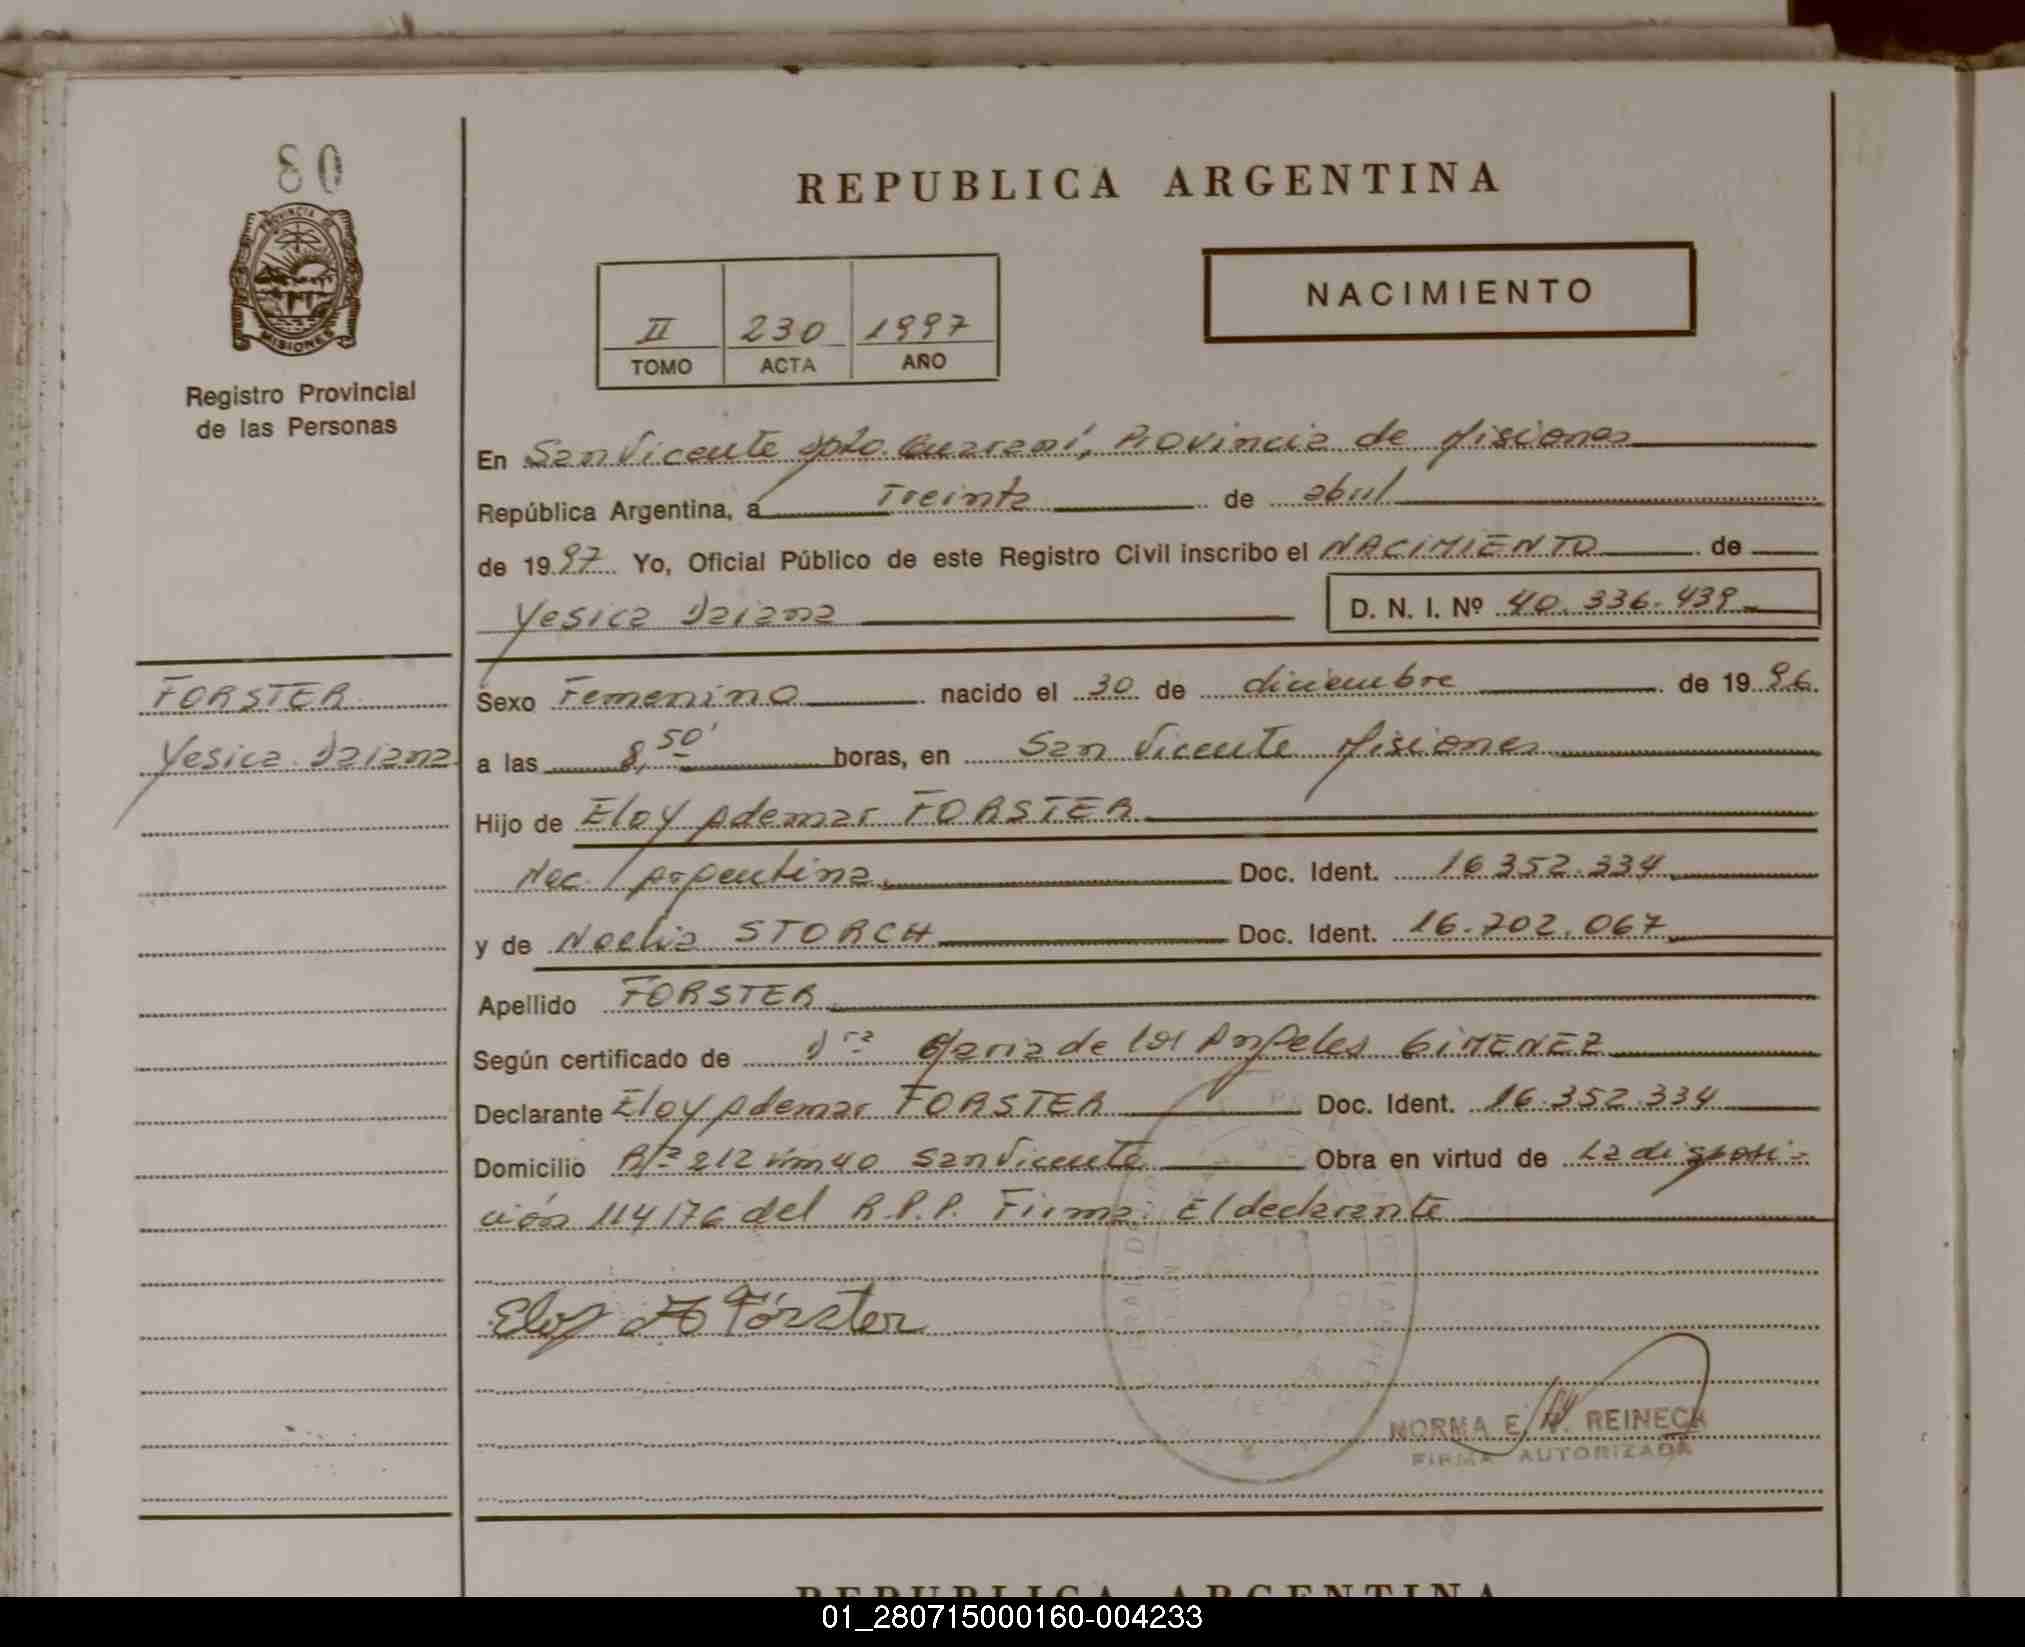 80
PROVINCIA DE
MISIONES
Registro Provincial
de las Personas
REPUBLICA ARGENTINA
II 230 1997
TOMO ACTA AÑO
NACIMIENTO
En San Vicente Dpto. Guaraní, Provincia de Misiones
República Argentina, a Treinta de abril
de 1997 Yo, Oficial Público de este Registro Civil inscribo el NACIMIENTO de
Yesica Daiana D. N. I. Nº 40.336.439
FORSTER
Yesica Daiana
Sexo Femenino nacido el 30 de diciembre de 1996
a las 8,50' horas, en San Vicente Misiones
Hijo de Eloy Ademar FORSTER
Nac. Argentina Doc. Ident. 16.352.334
y de Noelia STORCH Doc. Ident. 16.702.067
Apellido FORSTER
Según certificado de Dra Maria de los Angeles GIMENEZ
Declarante Eloy Ademar FORSTER Doc. Ident. 16.352.334
Domicilio Rta 212 km 40 San Vicente Obra en virtud de La disposi-
ción 114/76 del R.P.P. Firma: El declarante
Eloy A Förster
NORMA E. REINECK
FIRMA AUTORIZADA
REPUBLICA ARGENTINA
01_280715000160-004233